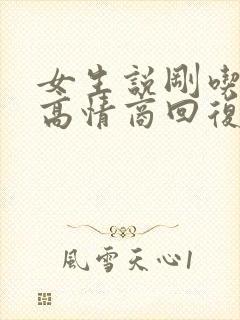 女生説剛喫
高情商回復
風雪天心1